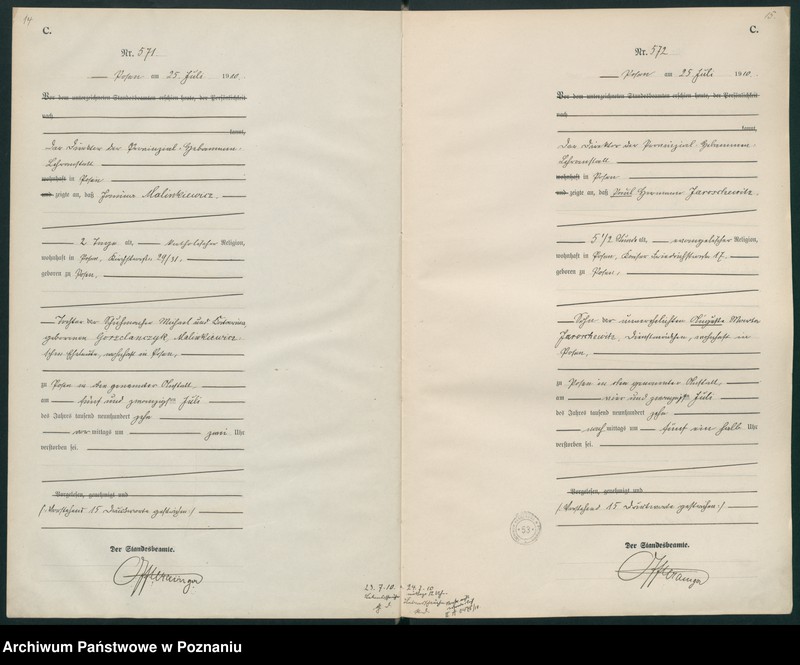 14
C.
Nr. 571
Posen am 25. Juli 1910.
Vor dem unterzeichneten Standesbeamten erschien heute, der Persönlichkeit
nach
kannt,
Der Direktor der Provinzial-Hebammen-
Lehranstalt
wohnhaft in Posen
und zeigte an, daß Malinkiewicz,
2 Tage alt, katholischer Religion,
wohnhaft in Posen, 29/31,
geboren zu Posen,
Tochter der Schuhmacher Michael und
geborenen Gorzelanczyk, Malinkiewicz-
schen Eheleute, wohnhaft in Posen,
zu Posen in der genannten Anstalt,
am fünf und zwanzigsten Juli
des Jahres tausend neunhundert zehn
vor mittags um zwei Uhr
verstorben sei.
Vorgelesen, genehmigt und
(Vorstehend 15 Druckworte gestrichen)
Der Standesbeamte.
15
C.
Nr. 572
Posen am 25 Juli 1910.
Vor dem unterzeichneten Standesbeamten erschien heute, der Persönlichkeit
nach
kannt,
Der Direktor der Provinzial-Hebammen-
Lehranstalt
wohnhaft in Posen
und zeigte an, daß Paul Hermann Jaroschewitz,
5 1/2 Stunde alt, evangelischer Religion,
wohnhaft in Posen, 17,
geboren zu Posen,
Sohn der unverehelichten Auguste Martha
Jaroschewitz, Dienstmädchen, wohnhaft in
Posen,
zu Posen in der genannten Anstalt,
am vier und zwanzigsten Juli
des Jahres tausend neunhundert zehn
nach mittags um fünf ein halb Uhr
verstorben sei.
Vorgelesen, genehmigt und
(Vorstehend 15 Druckworte gestrichen)
Der Standesbeamte.
53
23.7.10.
24.7.10
Archiwum Państwowe w Poznaniu